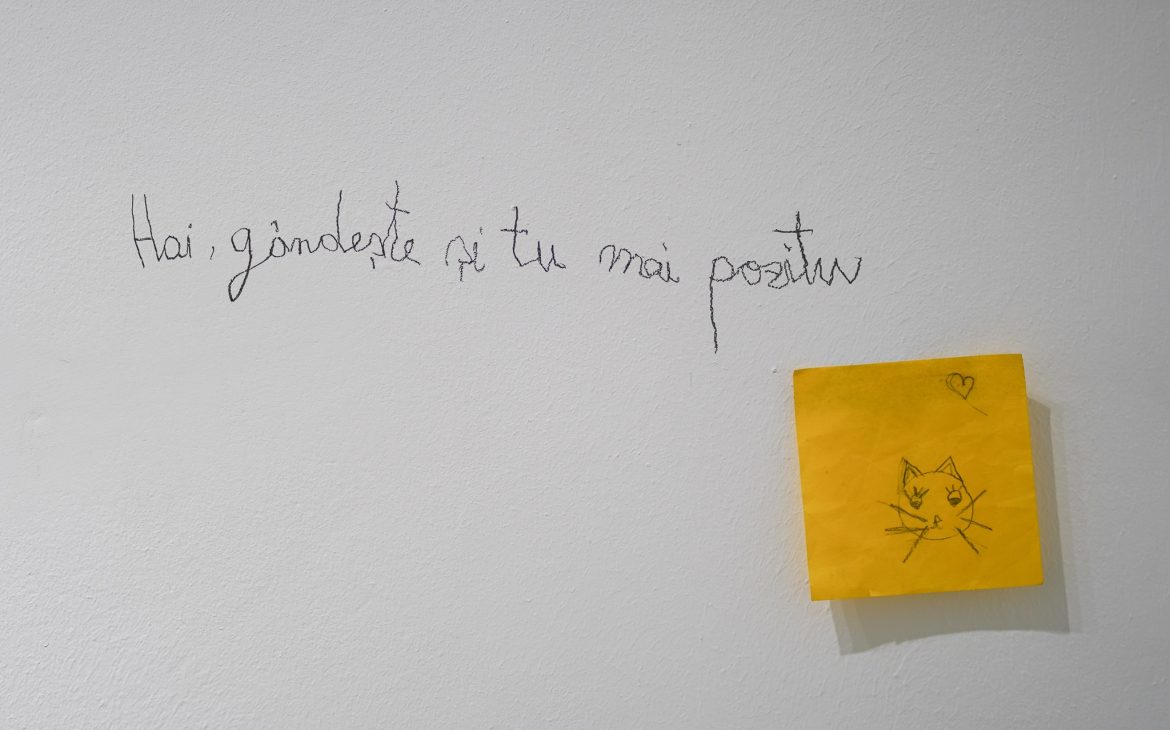 Hai, gândește și tu mai pozitiv